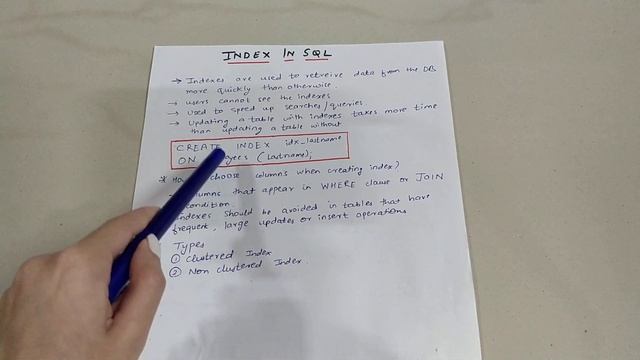 INDEX IN SQL
→ Indexes are used to retreive data from the DB
more quickly than otherwise.
→ users cannot see the indexes
→ Used to speed up searches/queries.
→ Updating a table with indexes takes more time
than updating a table without
CREATE INDEX idx_lastname
ON (Lastname);
* choose columns when creating index?
that appear in WHERE clause or JOIN
condition.
indexes should be avoided in tables that have
frequent, large updates or insert operations
Types
① Clustered Index
② Non clustered Index.